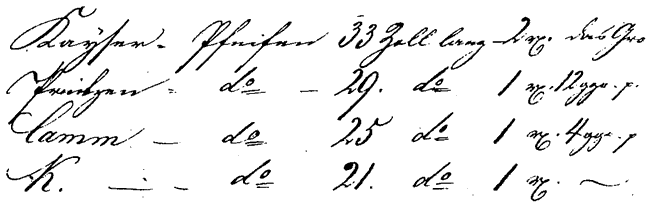 Kayser- Pfeifen 33 Zoll lang - 2 rx. das Gro
Printzen - do - 29. do 1 rx. 12 ggr. p.
Camm - do 25 do 1 rx. 4 ggr. p
K. - - do 21. do 1 rx. -